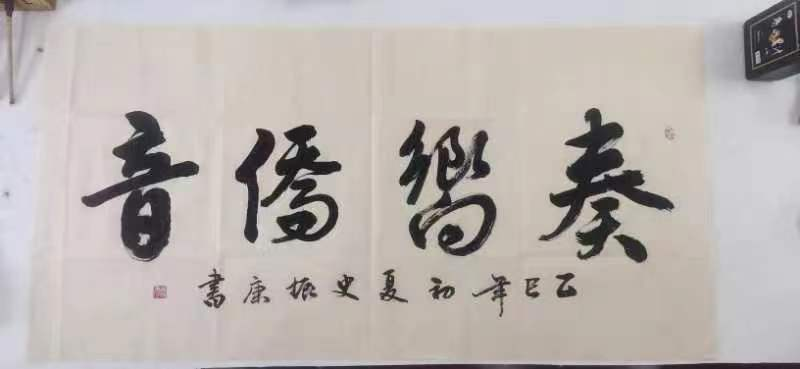 奏嚮僑音
乙巳年初夏史振康書